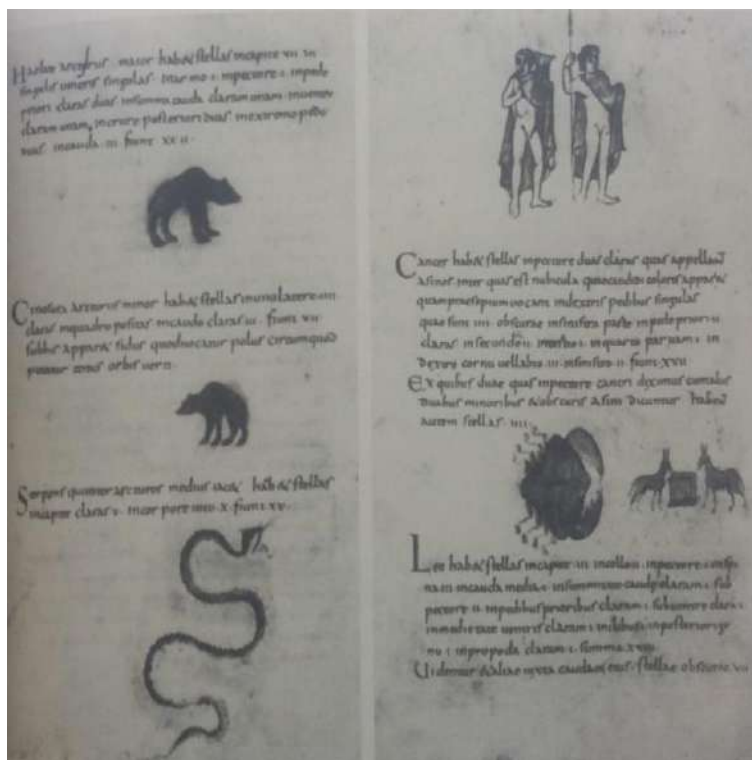 Haelice arcturus maior habet stellas incapite vii in
singulis umeris singulas inarmo i inpectore i inpede
priori claras duas insumma cauda claram unam inventre
claram unam incrure posteriori duas inextremo pede
duas incauda iii fiunt xxii
Cynosura arcturus minor habet stellas inunolatere iiii
claras inquadro positas incauda claras iii fiunt vii
subter apparet sidus quodvocatur polus circumquod
putatur totus orbis verti
Serpens quiinter arcturos medius iacet habet stellas
incapite claras v incorpore toto x fiunt xv
Cancer habet stellas inpectore duas claras quas appellant
asinos inter quas est nubicula quaecandidi coloris apparet
quam praesepium vocant indexteris pedibus singulas
quae sunt iiii obscurae insinistra parte inpede priori ii
claras insecundo ii intertio i inquarta parvam i in
dextro cornu vellabio iii insinistro ii fiunt xvii
Ex quibus duae quas inpectore cancri diximus cumaliis
duabus minoribus et obscuris asini dicuntur habent
autem stellas iiii
Leo habet stellas incapite iii incollo ii inpectore i inspi
na iii incauda media i insummitate caudae claram i sub
pectore ii inpedibus prioribus claram i subventre clara i
inmedietate ventris claram i inilibus i inposteriori ge
nu i inpropoda claram i summa xviiii
Videntur et aliae iuxta caudam eius stellae obscurae vii